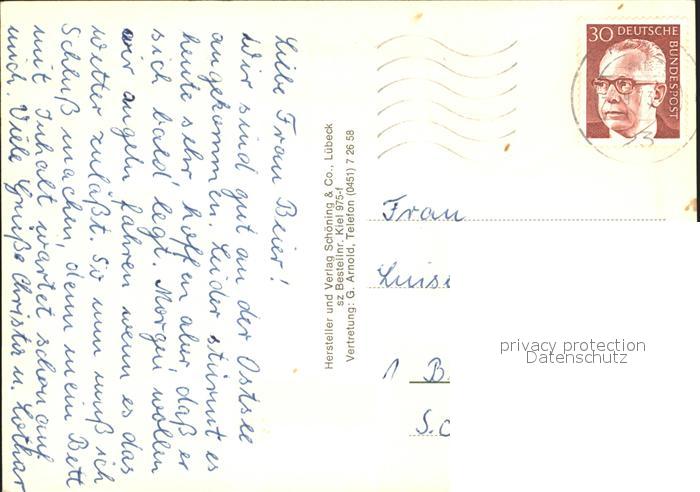 Liebe Frau Beier!
Wir sind gut an der Ostsee
angekommen. Leider stürmt es
heute sehr, hoffen aber, daß er
sich bald legt. Morgen wollen
wir angeln fahren wenn es das
Wetter zuläßt. So nun muß ich
Schluß machen, denn mein Bett
mit Inhalt wartet schon auf
mich. Viele Grüße Christa u. Lothar
Hersteller und Verlag Schöning & Co., Lübeck
sz Bestellnr. Kiel 975-f
Vertretung: G. Arnold, Telefon (0451) 7 26 58
30 DEUTSCHE
BUNDESPOST
Frau
Luise
1 B
privacy protection
Datenschutz